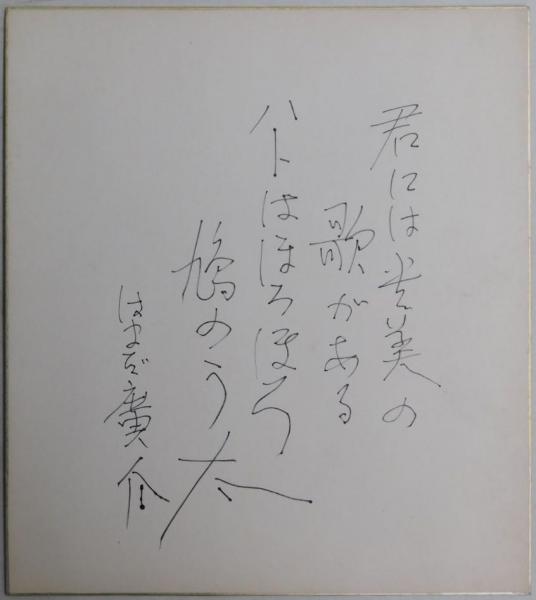 君には美の
歌がある
ハトはほろほろ
鳩のう太
はまだ廣介